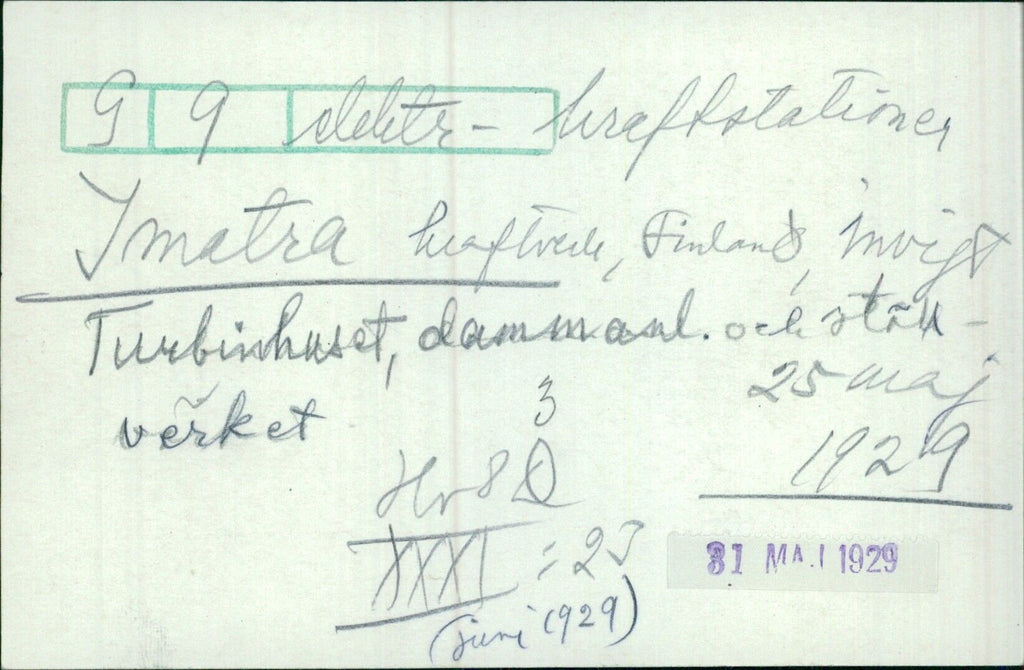 G 9 elektr- kraftstationer
Imatra kraftverk, Finland, invigt
Turbinhuset, dammanl. och ställ-
verket
25 maj
1929
3
Hv 8 D
XXXI :25
(juni 1929)
31 MAJ 1929